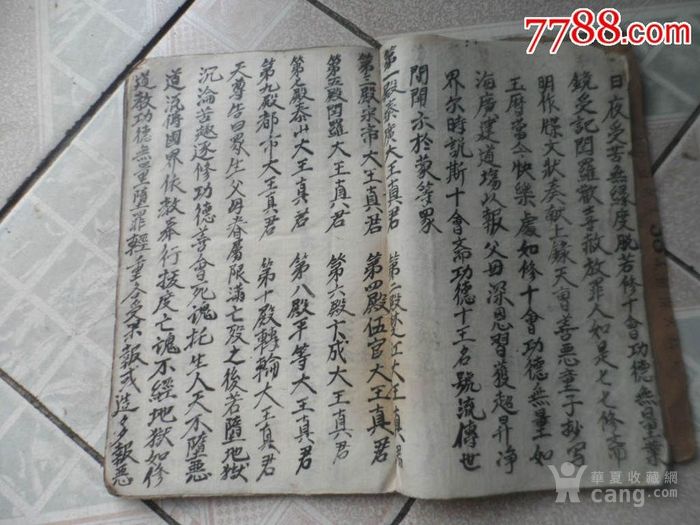 7788.com
日夜受苦無緣度脫若修十會功德無量業
鏡受記閻羅歡喜救放罪人如是七七修齋
明作牒文狀奏献上錄天曹善惡童子抄寫
玉曆當令快樂處如修十會功德無量如
海廣建道塲以報父母深恩習獲超昇净
界尔時說斯十會齋功德十王名號流傳世
間開示於蒙等眾
第一殿秦廣大王真君 第二殿楚江大王真君
第三殿宋帝大王真君 第四殿伍官大王真君
第五殿閻羅大王真君 第六殿卞成大王真君
第七殿泰山大王真君 第八殿平等大王真君
第九殿都市大王真君 第十殿轉輪大王真君
天尊告曰眾生父母眷屬限滿亡歿之後若墮地獄
沉淪苦趣逐修功德善會死魂托生人天不墮惡
道流傳國界依教奉行拔度亡魂不經地獄如修
道教功德無量墮罪輕重令受果報或造多報惡
華夏收藏網
cang.com